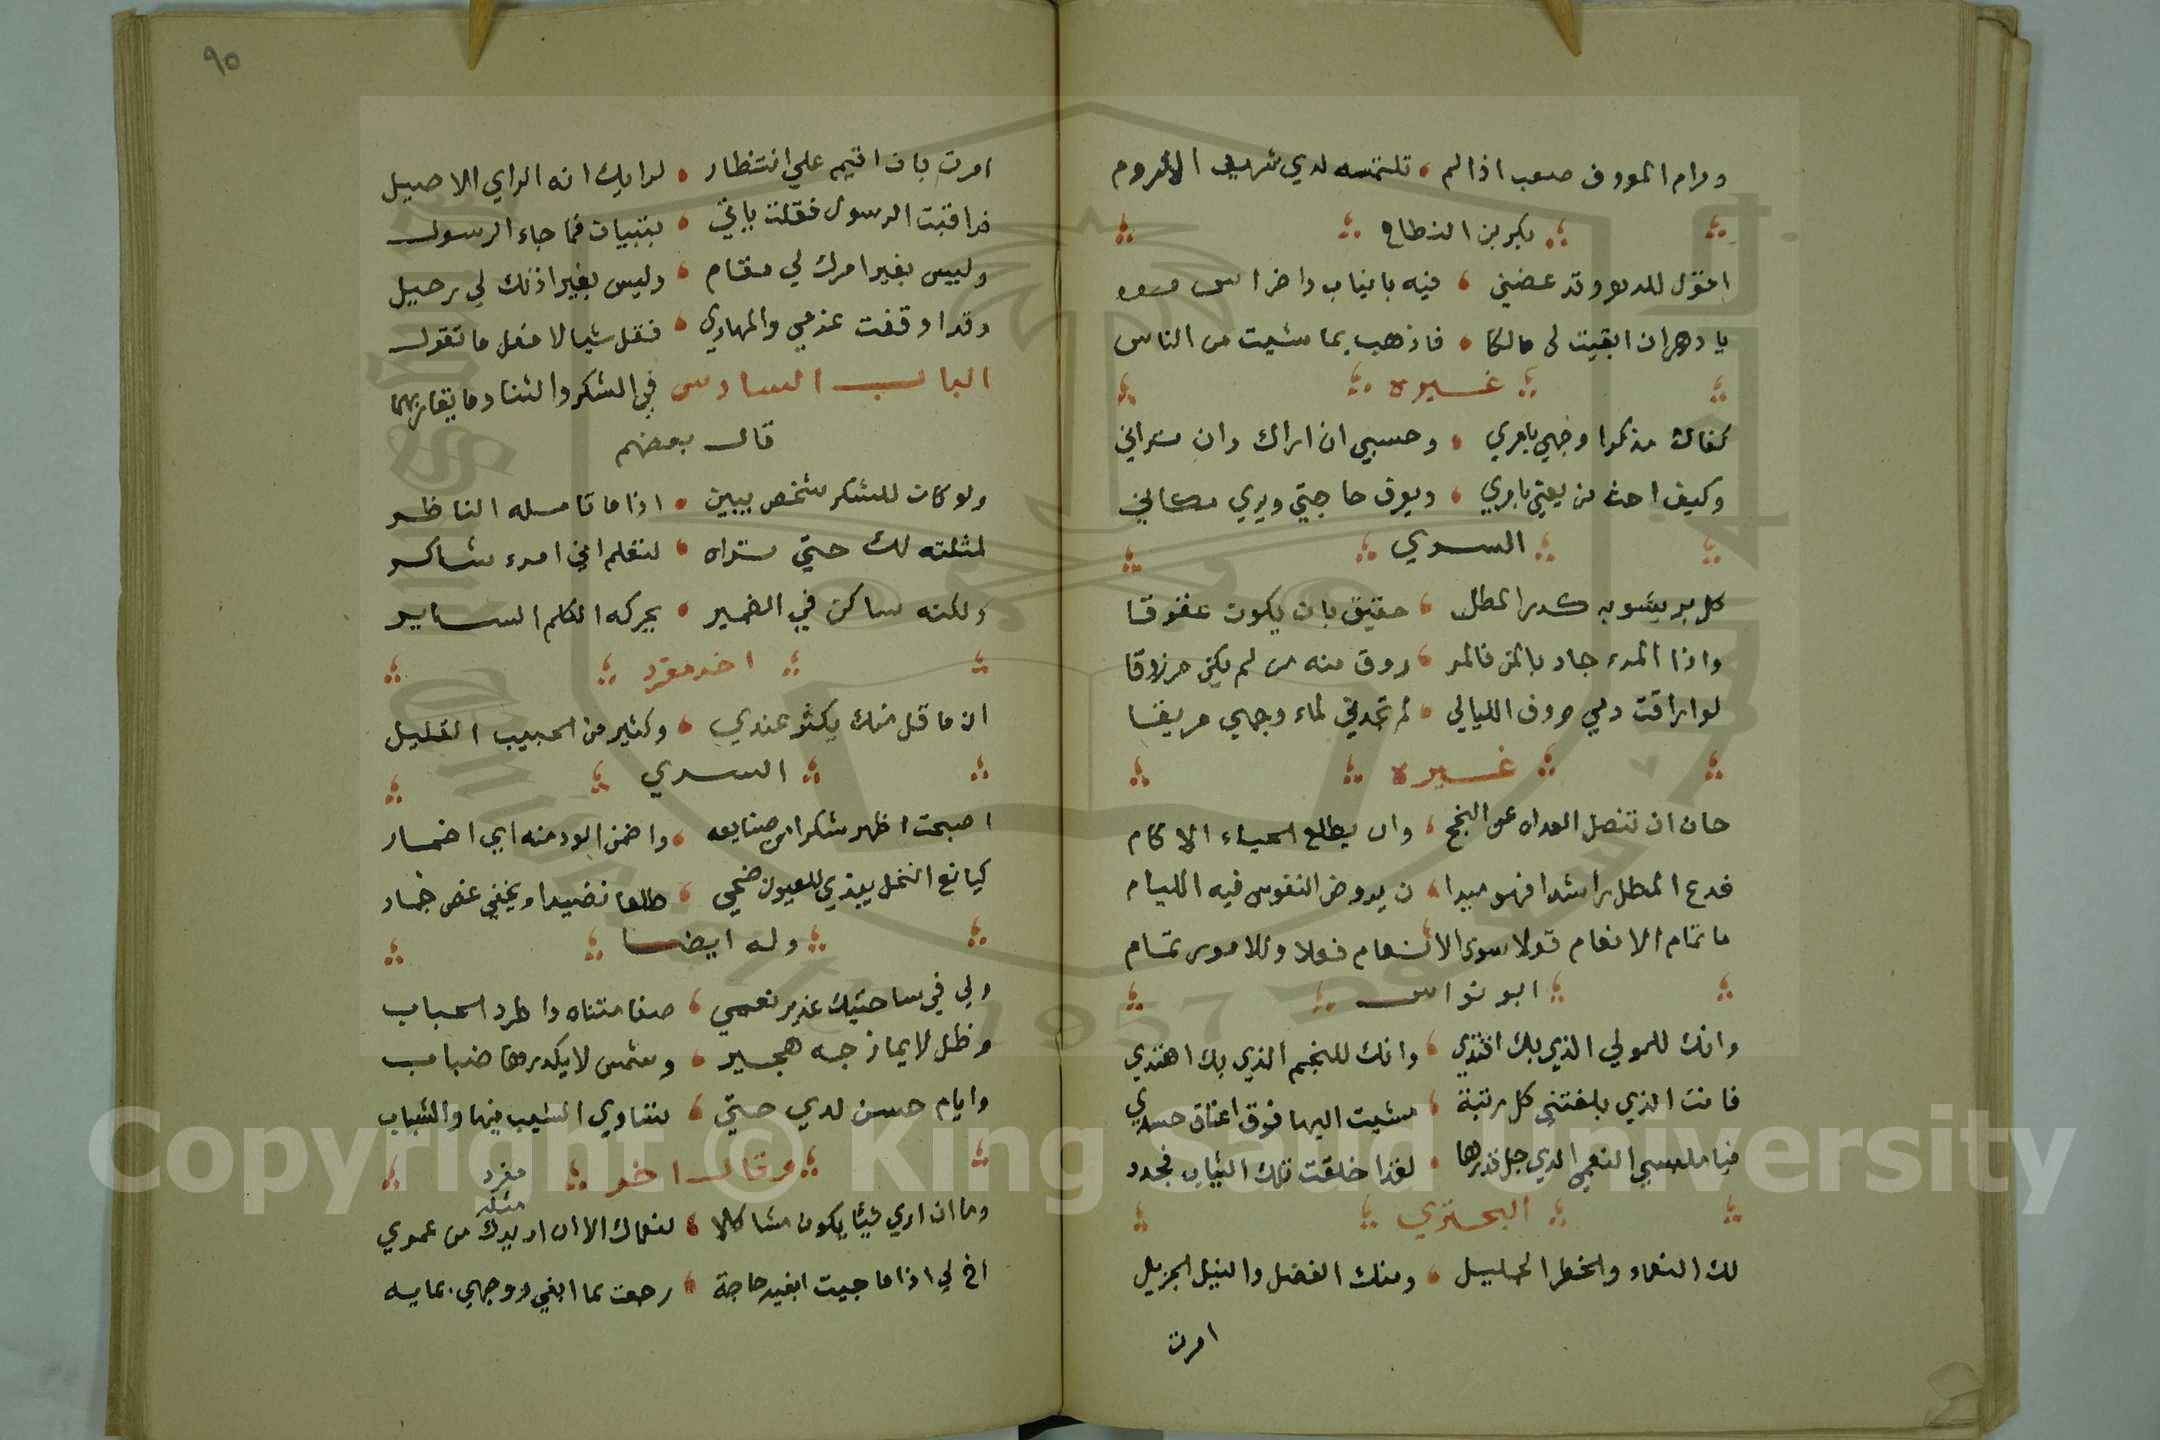 ومرام المعروف صعب اذا لم تلتمسه لدي شريف الاروم
بكر بن النطاح
اقول للدهر وقد عضني فيه بانياب واضراس
يا دهر ان ابقيت لي مالكا فاذهب بما شيت من الناس
غيره
كفاك مذكرا وجهي بامري وحسبي ان اراك وان تراني
وكيف احث من يعني بامري ويعرف حاجتي ويري مكاني
السري
كل بر يشوبه كدر المطل حقيق بان يكون عقوقا
واذا المرء جاد بالمن فالمر زوق منه من لم يكن مرزوقا
لو اراقت دمي صروف الليالي لم تجدني لماء وجهي مريقا
غيره
حان ان تنصل العداه عن النجح وان يطلع الحياء الاكام
فدع المطل راشدا فهو ميدا ن يروض النفوس فيه الليام
ما تمام الانعام قولا سوي الانعام فعلا وللامور تمام
ابو نواس
وانك للمولي الذي بك اقتدي وانك للنجم الذي بك اهتدي
فانت الذي بلغتني كل رتبة مشيت اليها فوق اعناق حسدي
فيا ملبسي النعمي الذي جل قدرها لقد اخلقت تلك الثياب فجدد
البحتري
لك النعماء والخطر الجليل ومنك الفضل والنيل الجزيل
امرت
٩٥
امرت بان اقيم علي انتظار لرايك انه الراي الاصيل
فراقبت الرسول فقلت ياتي بتبيان فما جاء الرسول
وليس بغير امرك لي مقام وليس بغير اذنك لي رحيل
وقد اوقفت عزمي والمهاري فقل شيا لافعل ما تقول
الباب السادس في الشكر والثنا وما يقاربهما
قال بعضهم
ولو كان للشكر شخص يبين اذا ما تامله الناظر
لمثلته لك حتي تراه لتعلم اني امرء شاكر
ولكنه ساكن في الضمير يحركه الكلم الساير
اخر مفرد
ان ما قل منك يكثر عندي وكثير من الحبيب القليل
السري
اصبحت اظهر شكرا من صنايعه واضمر الود منه اي اضمار
كيانع النخل يبدي للعيون ضحي طلعا نضيدا ويخفي غض جمار
وله ايضا
ولي في ساحتيك غدير نعمي صفا متناه واطرد الحباب
وظل لا يمازجه هجير وشمس لا يكدرها ضباب
وايام حسن لدي حتي تساوي الشيب فيها والشباب
وقال اخر مفرد
وما ان اري شيئا يكون مشاكلا لنعماك الا ان ازيدك مثله من عمري
اخ لي اذا ما جيت ابغيه حاجة رجعت بما ابغي ووجهي بمايه